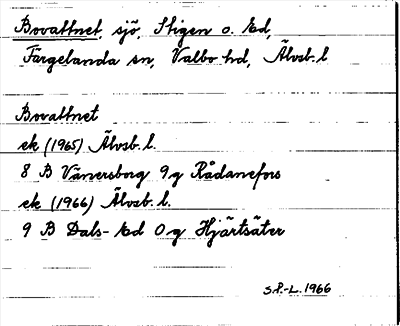 Bovattnet, sjö, Stigen o. Ed,
Färgelanda sn, Valbo hd, Älvsb. l
Bovattnet
ek (1965) Älvsb. l.
8 B Vänersborg 9 g Rådanefors
ek (1966) Älvsb. l.
9 B Dals-Ed 0 g Hjärtsäter
S.P.-L. 1966